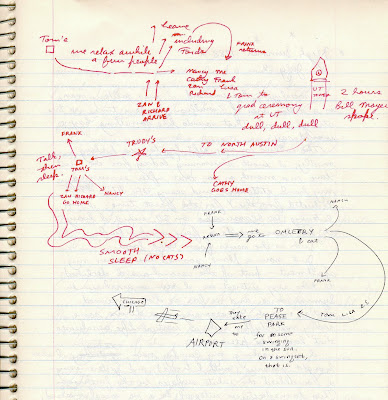 Tom's
we relax awhile
a few people
leave
including
Forda
FRANK
returns
Nancy me
Cathy Frank
Zan Lisa
Richard & Tom to
grad ceremony
at UT
dull, dull, dull
ZAN &
RICHARD
ARRIVE
UT
TOWER
2 hours
Bill Moyer
spoke.
FRANK
TRUDY'S
TO NORTH AUSTIN
Talk,
then
sleep.
TOM'S
ZAN RICHARD
GO HOME
NANCY
CATHY
GOES HOME
SMOOTH
SLEEP (NO CATS)
FRANK
NANCY
we
go to
OMLETTRY
& eat
FRANK
TOM LISA & I
TO
PEASE
PARK
for some
swinging
in the sun.
on a swingset,
that is.
me
to
AIRPORT
CHICAGO